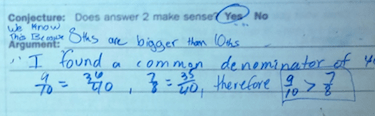 Conjecture: Does answer 2 make sense? Yes No
We Know
This Because 8ths are bigger than 10ths
Argument:
I found a common denominator of 4
9/10 = 36/40, 7/8 = 35/40, therefore 9/10 > 7/8